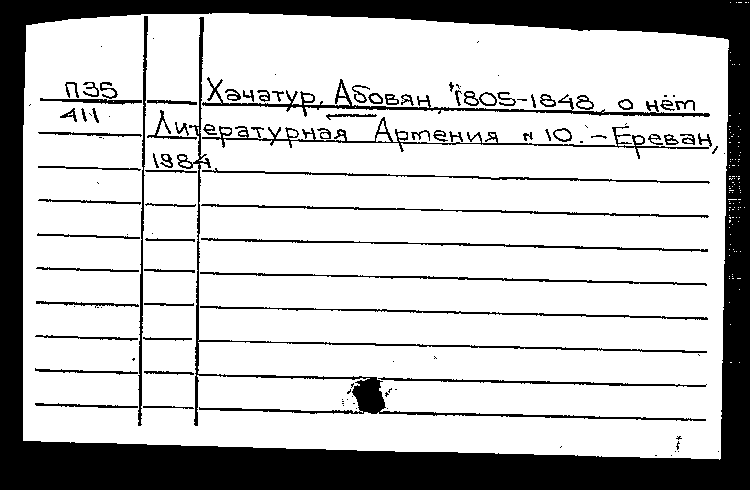 П35 Хачатур, Абовян, "1805-1848, о нём
411 Литературная Армения n 10. - Ереван,
1984.